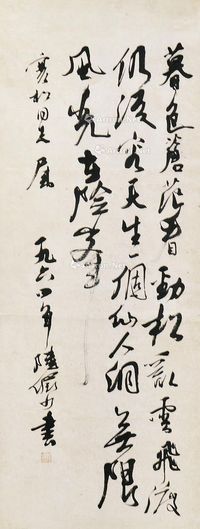 暮色蒼茫看勁松亂雲飛渡
仍從容天生一個仙人洞無限
風光在險峰
松同志屬
一九六四年陸儼少書